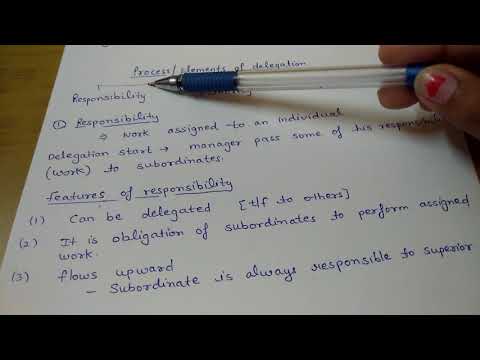 Process/ Elements of delegation
Responsibility
① Responsibility
⇒ Work assigned to an individual
Delegation start → manager pass some of his responsibility
(work) to subordinates.
Features of responsibility
(1) Can be delegated [t/f to others]
(2) It is obligation of subordinates to perform assigned
work.
(3) flows upward
- Subordinate is always responsible to superior